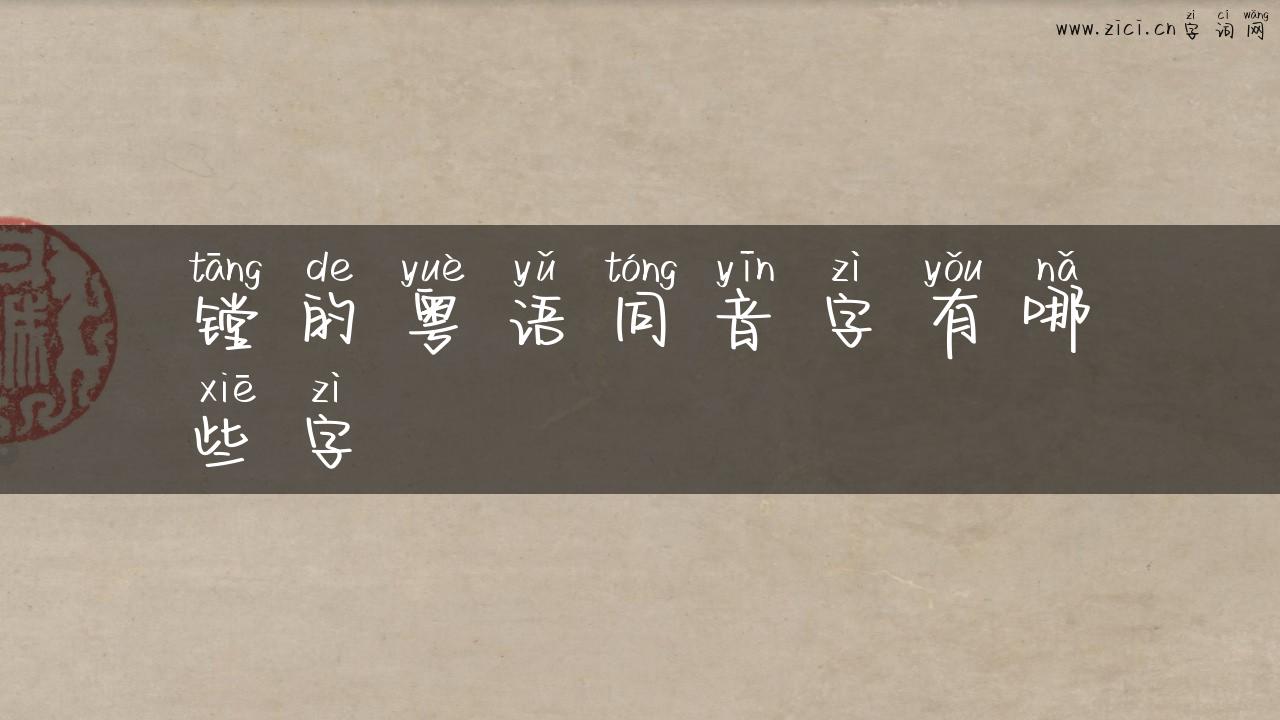 zì cí wǎng
www.zici.cn 字词网
tāng de yuè yǔ tóng yīn zì yǒu nǎ
镗的粤语同音字有哪
xiē zì
些字